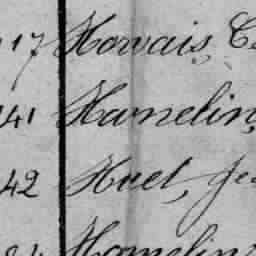 17 Horvais, C
41 Hamelin,
42 Huet, Je
Hamelin